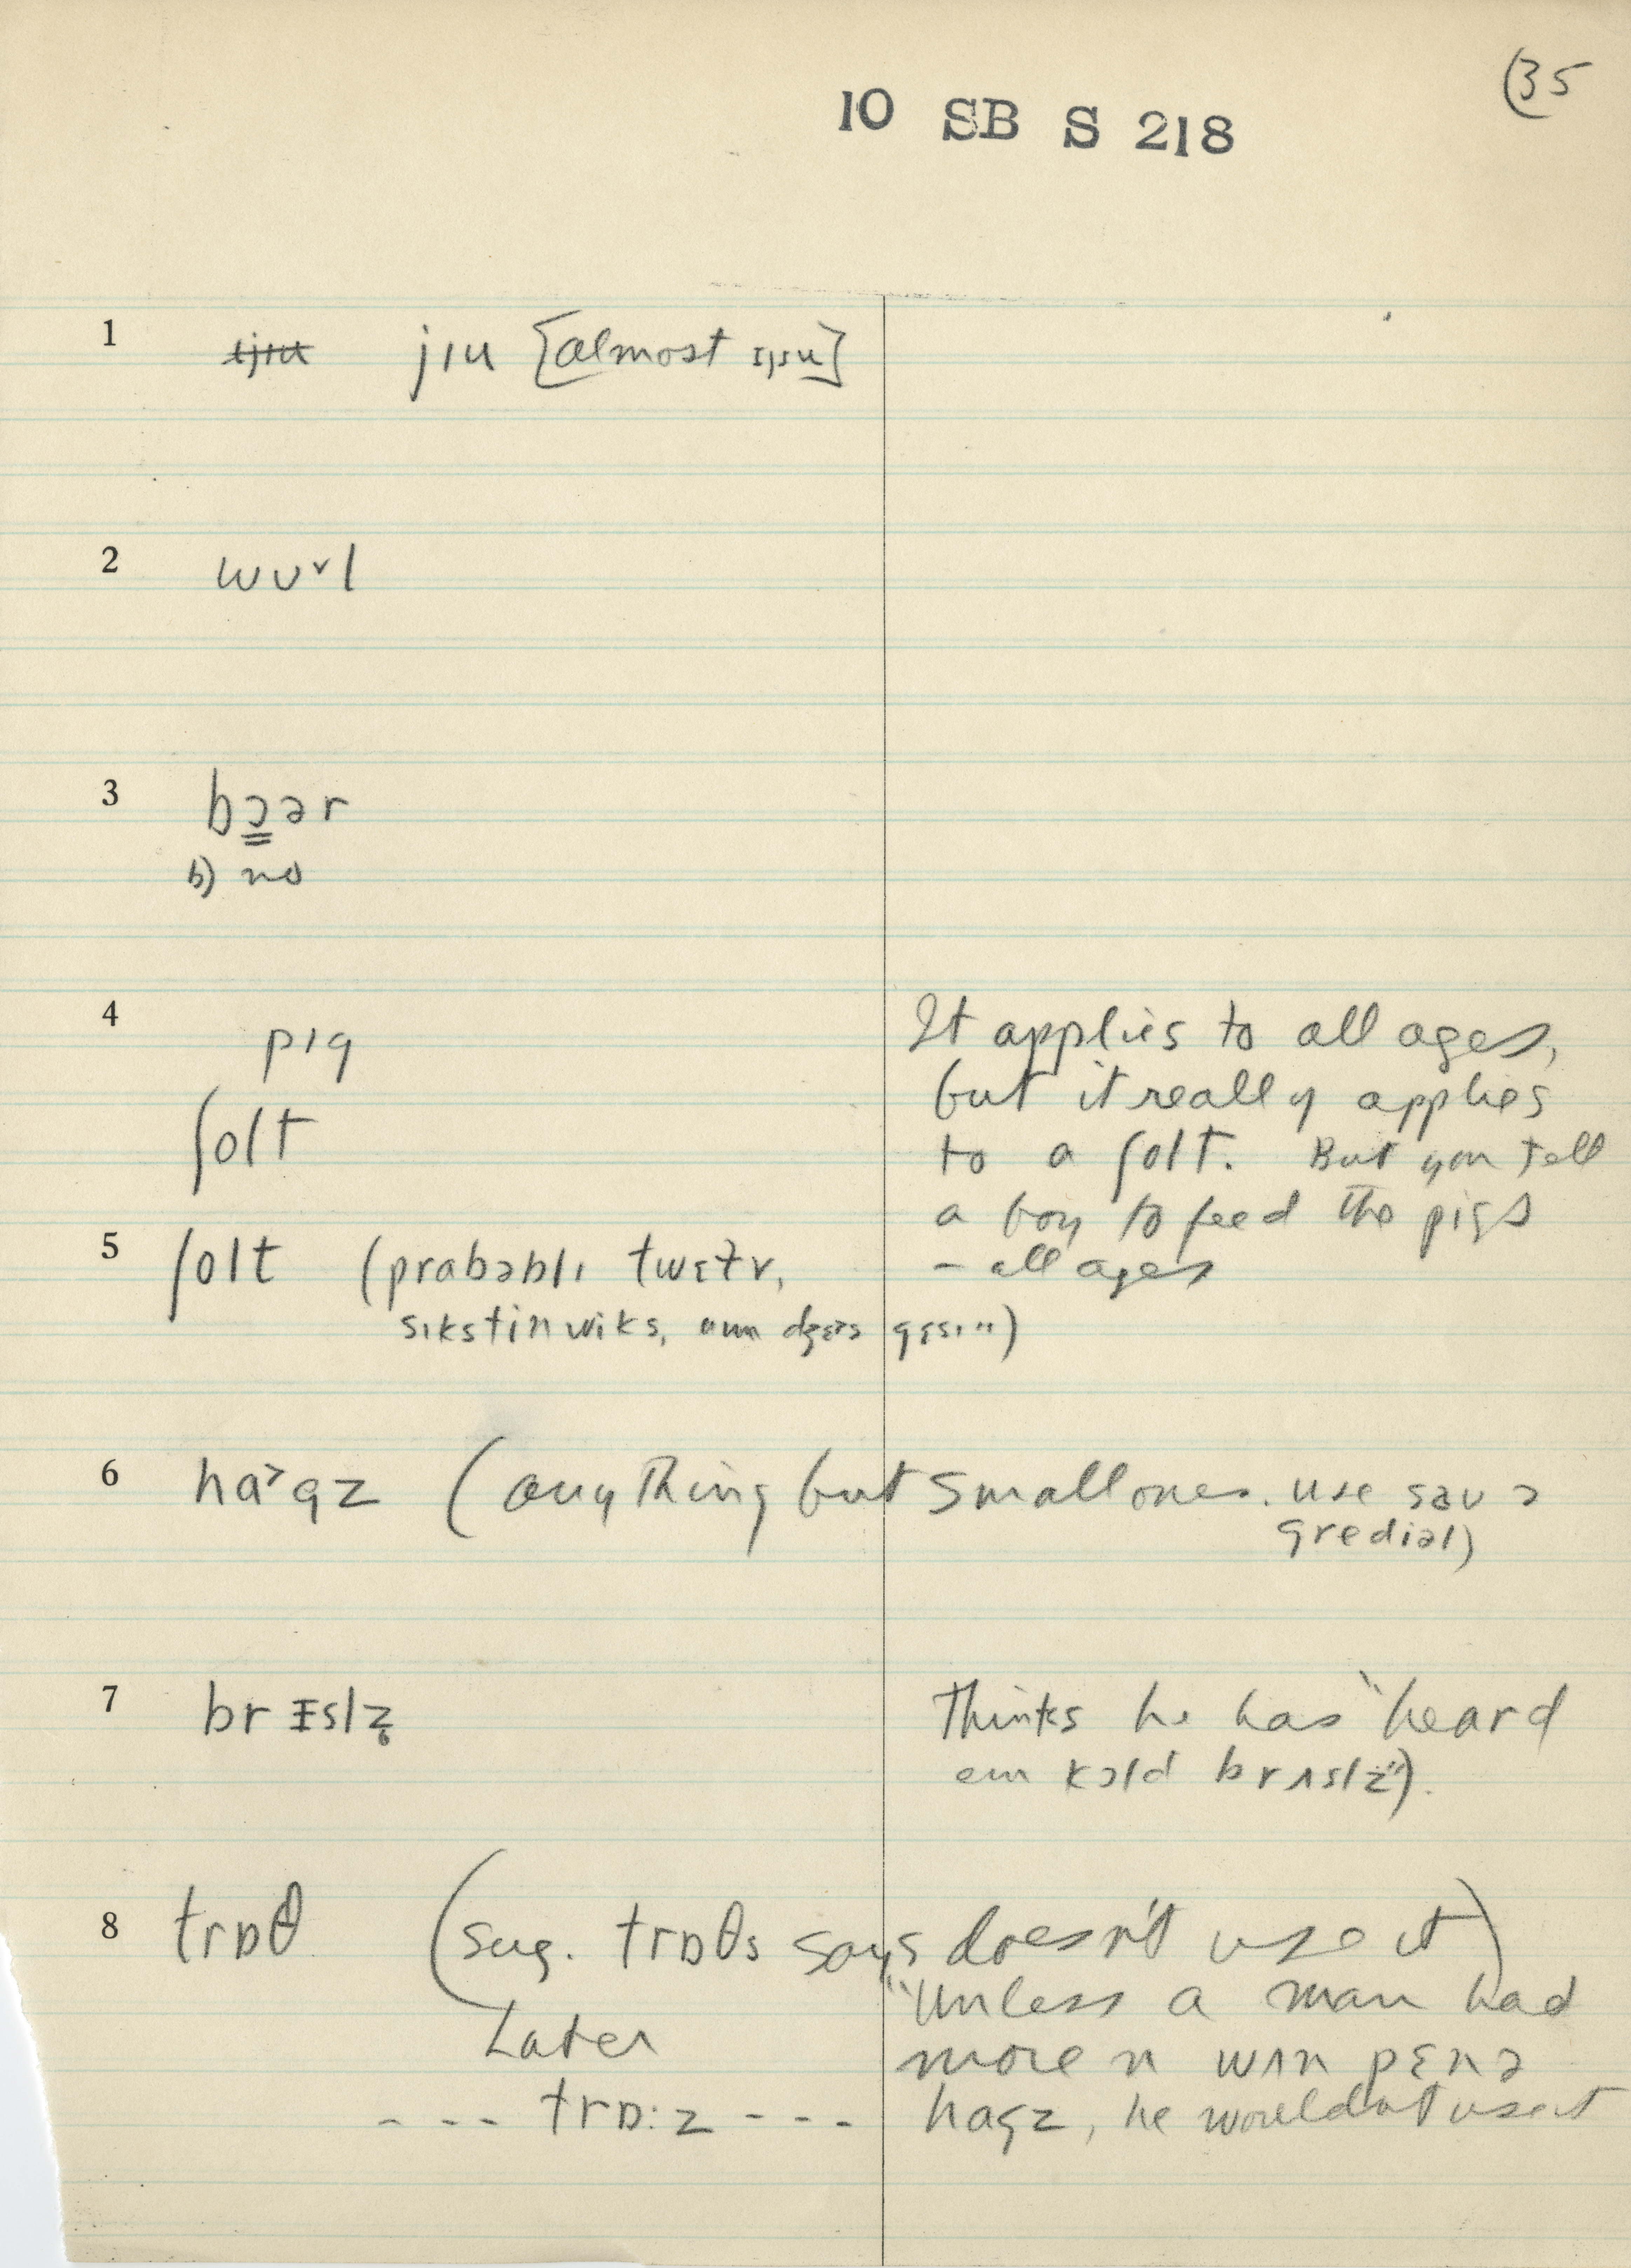 (35
10 SB S 218
1 jɪu [almost ɪjɪu]
2 wʊ˅l
3 bɔər
b) no
4 pɪg
It applies to all ages,
but it really applies
ʃolt
to a ʃolt. But you tell
a boy to feed the pigs
- all ages
5 ʃolt (probəblɪ twɛtv,
sɪkstin wiks,
6 ha˃gz (anything but small ones. use sɑu ə
gredial)
7 br ɪslz̥
Thinks he has "heard
em kɔld brʌslz̥").
8 trɒθ (sug. trɒθs says doesn't use it)
"Unless a man had
Later
more n wʌn pɛnə
--- trɒ:z --- hagz, he wouldnt use it